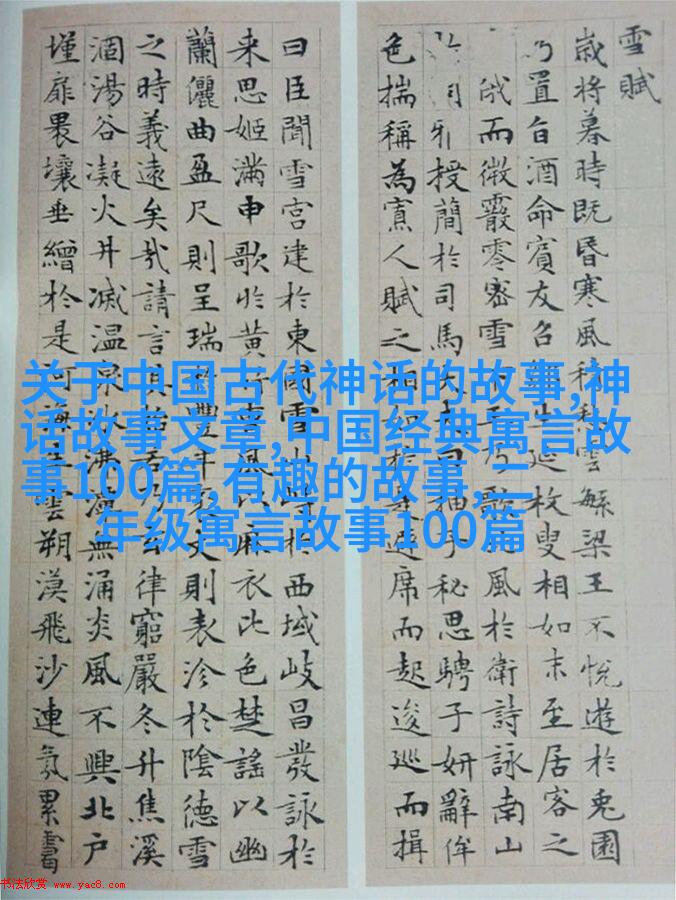 雪賦
歲將暮時既昏寒風積愁雲緐梁王不悅遊於兔園
乃置旨酒命賓友召生延枚叟相如末至居客之
俄而微霰零密雪下乃歌風於衛詩詠南山
雅授簡於司馬大曰抽子秘思騁子妍辭侔
色揣稱為寡人賦之相如於是避席而起逡巡而揖
曰臣聞雪宮建於東國雪山峙於西域岐昌發詠於
來思姬滿申歌於黃竹曹風以麻衣比色楚謠以幽
蘭儷曲盈尺則呈瑞於豐年袤丈則表沴於陰德雪
之時義遠矣哉請言其始若乃玄律窮嚴冬升焦溪
涸湯谷凝火井滅溫泉冰沸潭無涌炎風不興北戶
墐扉裸壤垂繒於是河海生雲朔漠飛沙連氛累靄
关于中国古代神话的故事,神
话故事文章,中国经典寓言故
事100篇,有趣的故事,二
年级寓言故事100篇
书法欣赏 www.yac8.com